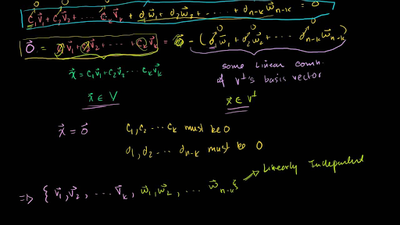 c₁v⃗₁ + c₂v⃗₂ + ..... cₖv⃗ₖ + d₁w⃗₁ + d₂w⃗₂ + ..... + dₙ₋ₖw⃗ₙ₋ₖ = 0
0⃗ = v⃗₁ + v⃗₂ + ..... v⃗ₖ = - (d₁w⃗₁ + d₂w⃗₂ + ..... dₙ₋ₖw⃗ₙ₋ₖ)
x⃗ = c₁v⃗₁ + c₂v⃗₂ ... cₖv⃗ₖ
some linear comb.
of V⊥'s basis vector
x⃗ ∈ V
x⃗ ∈ V⊥
x⃗ = 0⃗
c₁, c₂ ... cₖ must be 0
d₁, d₂ ... dₙ₋ₖ must be 0
⇒ { v⃗₁, v⃗₂, ... v⃗ₖ, w⃗₁, w⃗₂, ... w⃗ₙ₋ₖ } → Linearly Independent.